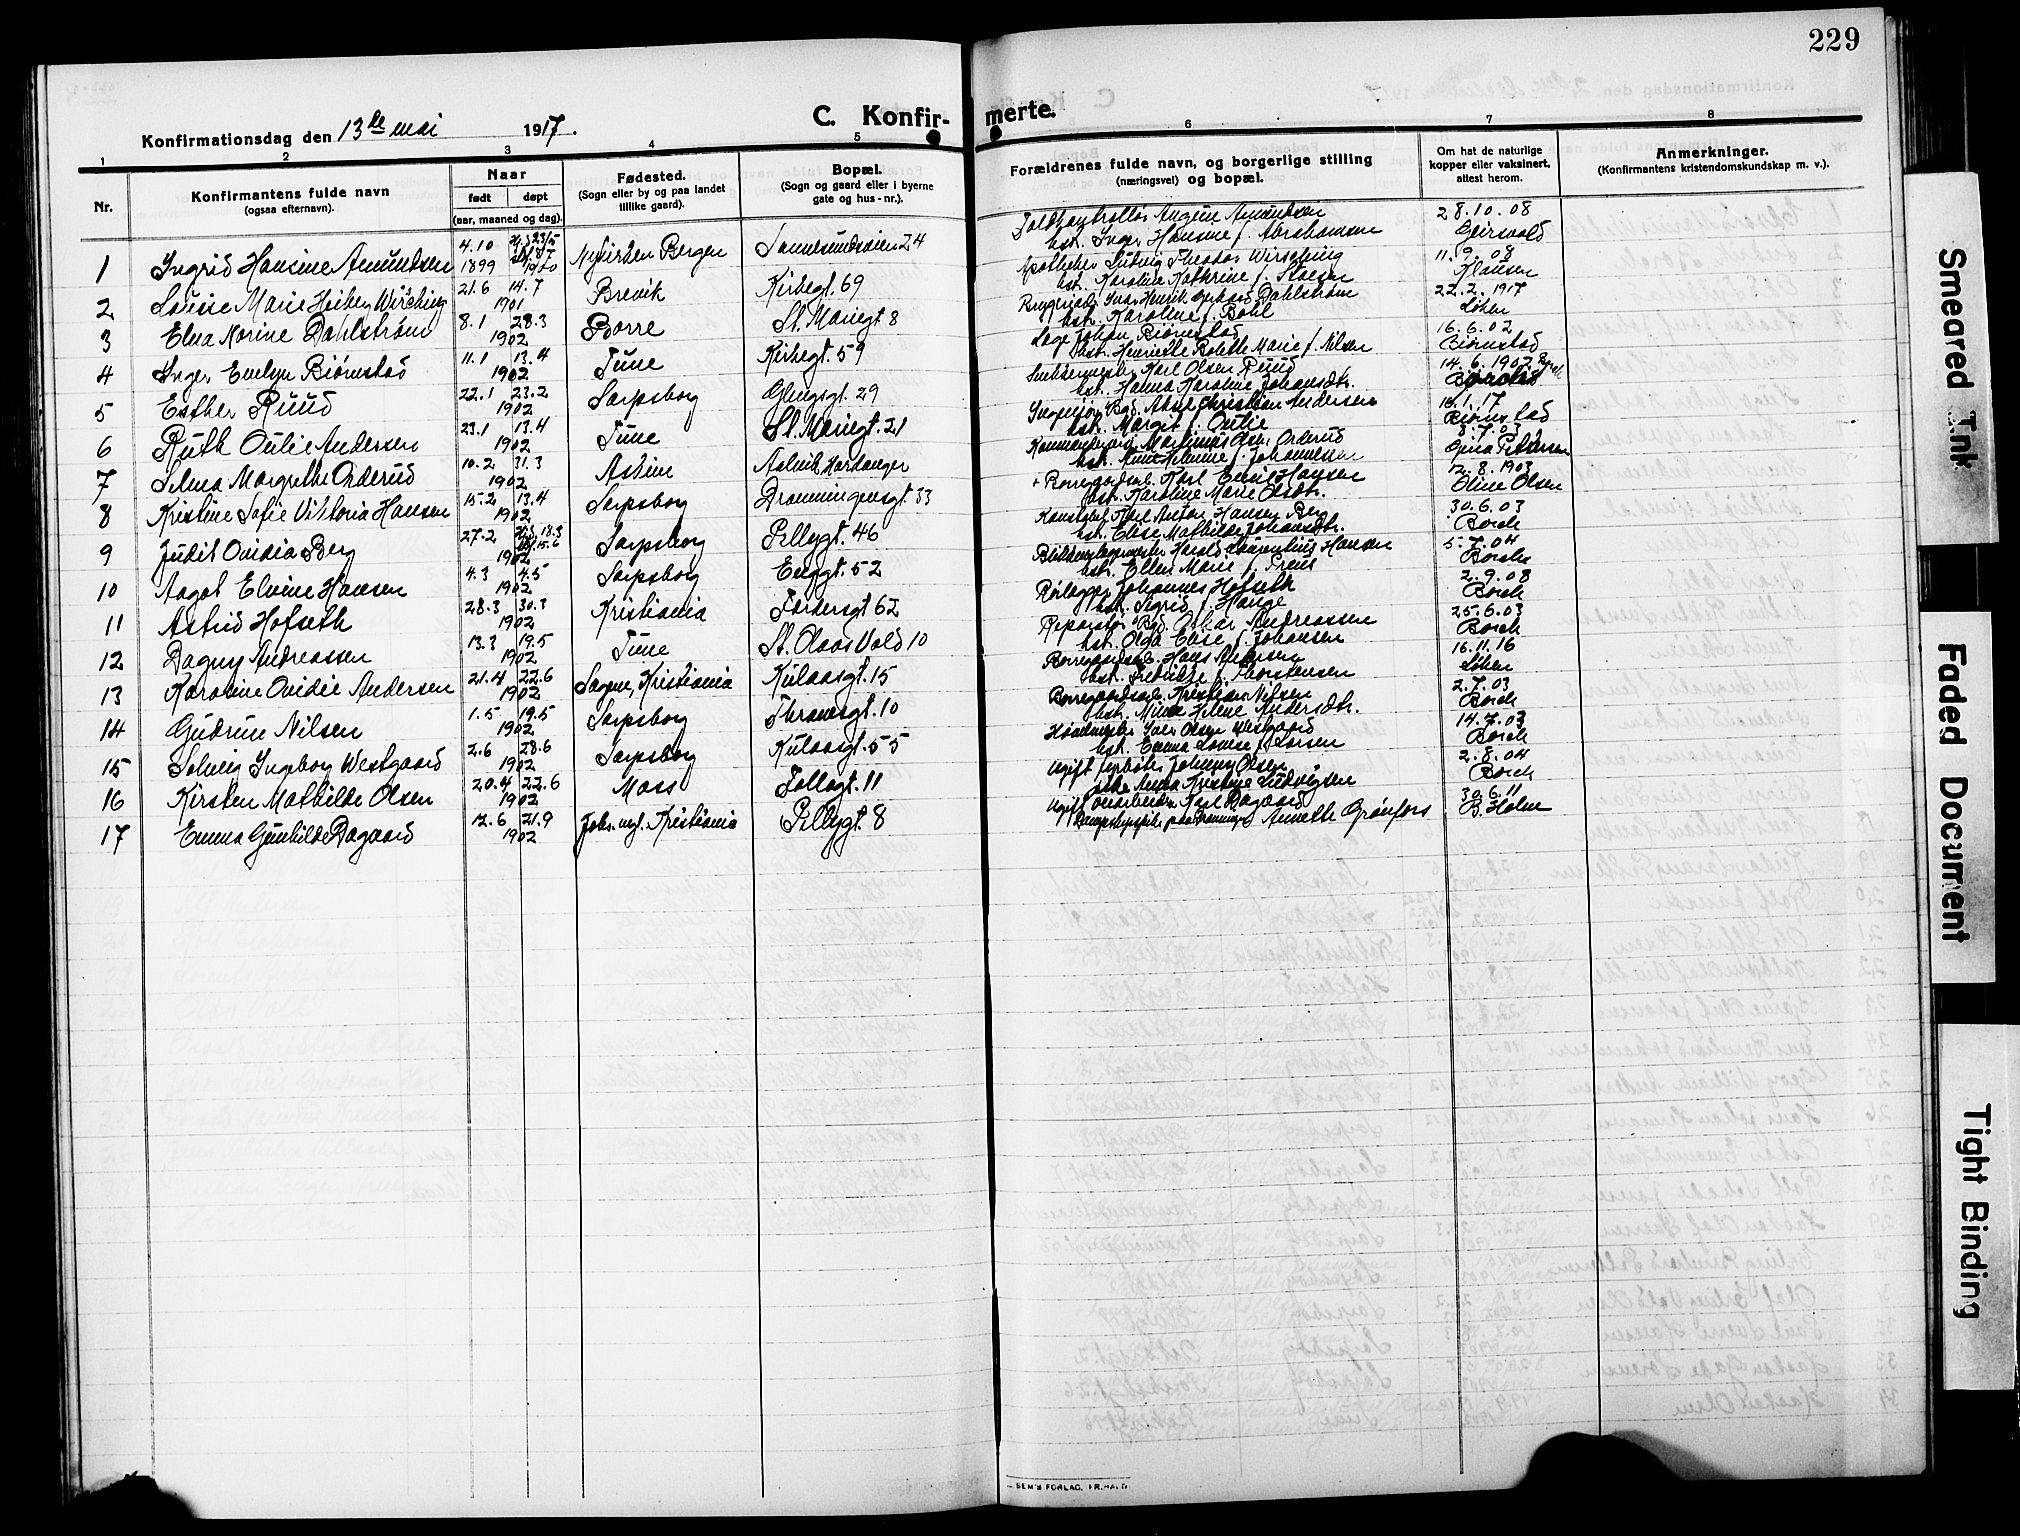 229
C. Konfirmerte.
Konfirmationsdag den 13de mai 1917.
1 2 3 4 5 6 7 8
Nr.
Konfirmantens fulde navn
(ogsaa efternavn).
Naar
født døpt
(aar, maaned og dag).
Fødested.
(Sogn eller by og paa landet
tillike gaard).
Bopæl.
(Sogn og gaard eller i byerne
gate og hus-nr.).
Forældrenes fulde navn, og borgerlige stilling
(næringsvei) og bopæl.
Om hat de naturlige
kopper eller vaksinert.
attest herom.
Anmerkninger.
(Konfirmantens kristendomskundskap m. v.).
1 Ingrid Hansine Amundsen 4.10 1899 1900 Nykirken Bergen 24 August Amundsen hst. Inger Hansine f. Abrahamsen 28.10.08
2 Louise Marie Heiberg Wirsching 21.6 14.7 1901 Brevik Kirkegt. 69 Apotheker Ludvig Theodor Wirsching hst. Karoline Kathrine f. 11.9.08 Klausen
3 Elna Norine Dahlstrøm 8.1 28.3 1902 Borre St. Mariegt 8 Ivar Henrik Gerhard Dahlstrøm hst. Karoline f. Bohl 22.2.1917 Løken
4 Inger Evelyn Bjørnstad 11.1 13.4 1902 Tune Kirkegt. 59 Læge Johan Bjørnstad hst. Henriette Bolette Marie f. Nilsen 16.6.02 Bjørnstad
5 Esther Ruud 22.1 23.2 1902 Sarpsborg Glengsgt. 29 Karl Olsen Ruud hst. Hanna Karoline Johansdtr. 14.6.1902
6 Ruth Oulie Andersen 23.1 13.4 1902 Tune St. Mariegt. 21 Christian Andersen hst. Margit f. Oulie 1.17 Bjørnstad
7 Selma Margrethe Onderud 10.2 31.3 1902 Askim Aalvik Hardanger Martinius Olsen Onderud hst. f. Johannessen 3.7.03 Petersen
8 Kristine Sofie Viktoria Hansen 15.2 13.4 1902 Sarpsborg Dronningensgt. 33 + Borregaardsarb. Karl Emil Hansen hst. Karoline Marie Olsdtr. 12.8.1903 Oline Olsen
9 Judit Ovidia Berg 27.2 18.3 15.6 1902 Sarpsborg Pellygt. 46 Karl Anton Hansen Berg hst. Elise Mathilde Johansdtr. 30.6.03 Borch
10 Aagot Elvine Hansen 4.3 4.5 1902 Sarpsborg Enggt. 52 Harald Laurentius Hansen hst. Ellen Marie f. Preus 5.7.04 Borch
11 Astrid Hofseth 28.3 30.3 1902 Kristiania Tordersgt 62 Rørlægger Johannes Hofseth hst. Sigrid f. Hauge 2.9.08 Borch
12 Dagny Andreassen 13.3 19.5 1902 Tune St. Olavs Vold 10 Reparatør Bgd. Oskar Andreassen hst. Olga Elise f. Johansen 25.6.03 Borch
13 Karoline Ovidie Andersen 21.4 22.6 1902 Sagene, Kristiania Kulaasgt. 15 Borregaardsarb. Hans Andersen hst. Fredrikke f. Thorstensen 16.11.16 Løken
14 Gudrun Nilsen 1.5 19.5 1902 Sarpsborg Thranesgt. 10 Borregaardsarb. Kristian Nilsen hst. Mina Helene Andersdtr. 2.7.03 Borch
15 Solveig Ingeborg Westgaard 2.6 28.6 1902 Sarpsborg Kulaasgt. 55 Iver Olsen Westgaard hst. Emma Lovise f. Larsen 14.7.03 Borch
16 Kirsten Mathilde Olsen 20.4 22.6 1902 Moss Tollogt. 11 Ugift Johnny Olsen pike Anna Kristine Ludvigsen 2.8.04 Borch
17 Emma Gunhilde Dagaard 12.6 21.9 1902 Kristiania Pellygt. 8 Ugift Karl Dagaard Annette Grønfors 30.6.11 B. Holm
SEM'S FORLAG, FR.HALD
Smeared Ink
Faded Document
Tight Binding